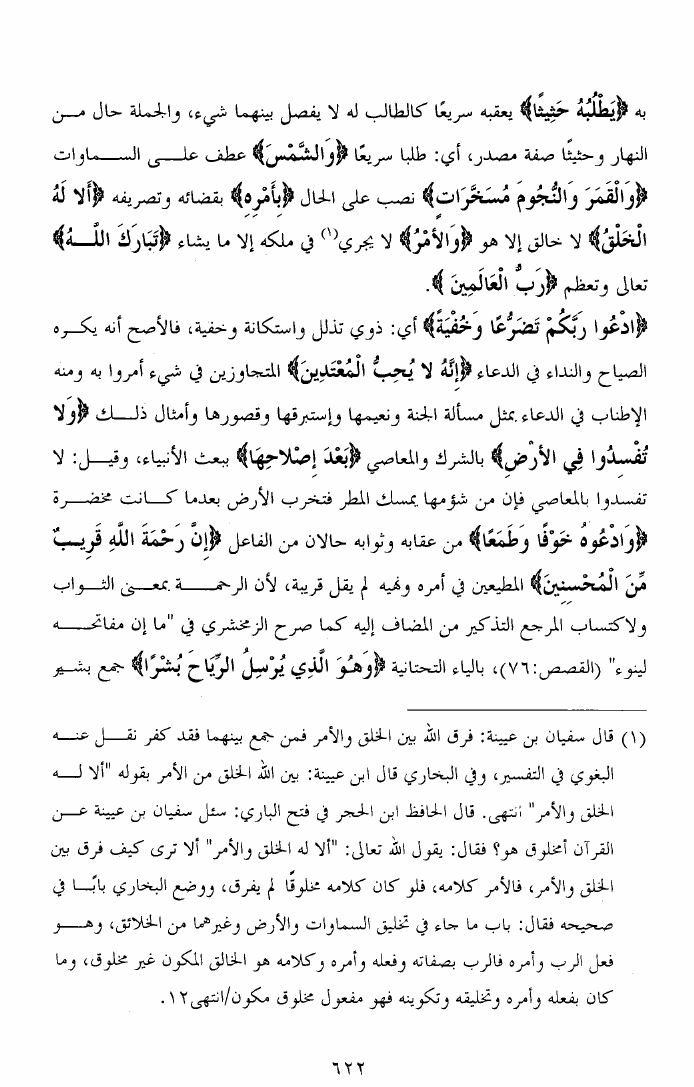 به ﴿يَطْلُبُهُ حَثِيثًا﴾ يعقبه سريعًا كالطالب له لا يفصل بينهما شيء، والجملة حال مـن
النهار وحثيثًا صفة مصدر، أي: طلبا سريعًا ﴿وَالشَّمْسَ﴾ عطف علـــى الســـماوات
﴿وَالْقَمَرَ وَالنُّجُومَ مُسَخَّرَاتٍ﴾ نصب على الحال ﴿بِأَمْرِهِ﴾ بقضائه وتصريفه ﴿أَلا لَهُ
الْخَلْقُ﴾ لا خالق إلا هو ﴿وَالأَمْرُ﴾ لا يجري(١) في ملكه إلا ما يشاء ﴿تَبَارَكَ اللـــهُ﴾
تعالى وتعظم ﴿رَبُّ الْعَالَمِينَ ﴾.
﴿ادْعُوا رَبَّكُمْ تَضَرُّعًا وَخُفْيَةً﴾ أي: ذوي تذلل واستكانة وخفية، فالأصح أنه يكـره
الصياح والنداء في الدعاء ﴿إِنَّهُ لا يُحِبُّ الْمُعْتَدِينَ﴾ المتجاوزين في شيء أمروا به ومنه
الإطناب في الدعاء بمثل مسألة الجنة ونعيمها وإستبرقها وقصورها وأمثال ذلـــك ﴿وَلا
تُفْسِدُوا فِي الأَرْضِ﴾ بالشرك والمعاصي ﴿بَعْدَ إِصْلاحِهَا﴾ ببعث الأنبياء، وقيـــل: لا
تفسدوا بالمعاصي فإن من شؤمها يمسك المطر فتخرب الأرض بعدما كـــانت مخضـرة
﴿وَادْعُوهُ خَوْفًا وَطَمَعًا﴾ من عقابه وثوابه حالان من الفاعل ﴿إِنَّ رَحْمَةَ اللَّهِ قَرِيـبٌ
مِّنَ الْمُحْسِنِينَ﴾ المطيعين في أمره ونهيه لم يقل قريبة، لأن الرحمـــــة بمعـــنى الثـواب
ولاكتساب المرجع التذكير من المضاف إليه كما صرح الزمخشري في "ما إن مفاتحـــه
لينوء" (القصص:٧٦)، بالياء التحتانية ﴿وَهُوَ الَّذِي يُرْسِلُ الرِّيَاحَ بُشْرًا﴾ جمع بشـير
(١) قال سفيان بن عيينة: فرق الله بين الخلق والأمر فمن جمع بينهما فقد كفر نقـــل عنـــه
البغوي في التفسير، وفي البخاري قال ابن عيينة: بين الله الخلق من الأمر بقوله "ألا لـــه
الخلق والأمر" انتهى. قال الحافظ ابن الحجر في فتح الباري: سئل سفيان بن عيينة عـــن
القرآن أمخلوق هو؟ فقال: يقول الله تعالى: "ألا له الخلق والأمر" ألا ترى كيف فرق بين
الخلق والأمر، فالأمر كلامه، فلو كان كلامه مخلوقًا لم يفرق، ووضع البخاري بابًـا في
صحيحه فقال: باب ما جاء في تخليق السماوات والأرض وغيرهما من الخلائق، وهـــو
فعل الرب وأمره فالرب بصفاته وفعله وأمره وكلامه هو الخالق المكون غير مخلوق، وما
كان بفعله وأمره وتخليقه وتكوينه فهو مفعول مخلوق مكون/انتهى١٢.
٦٢٢